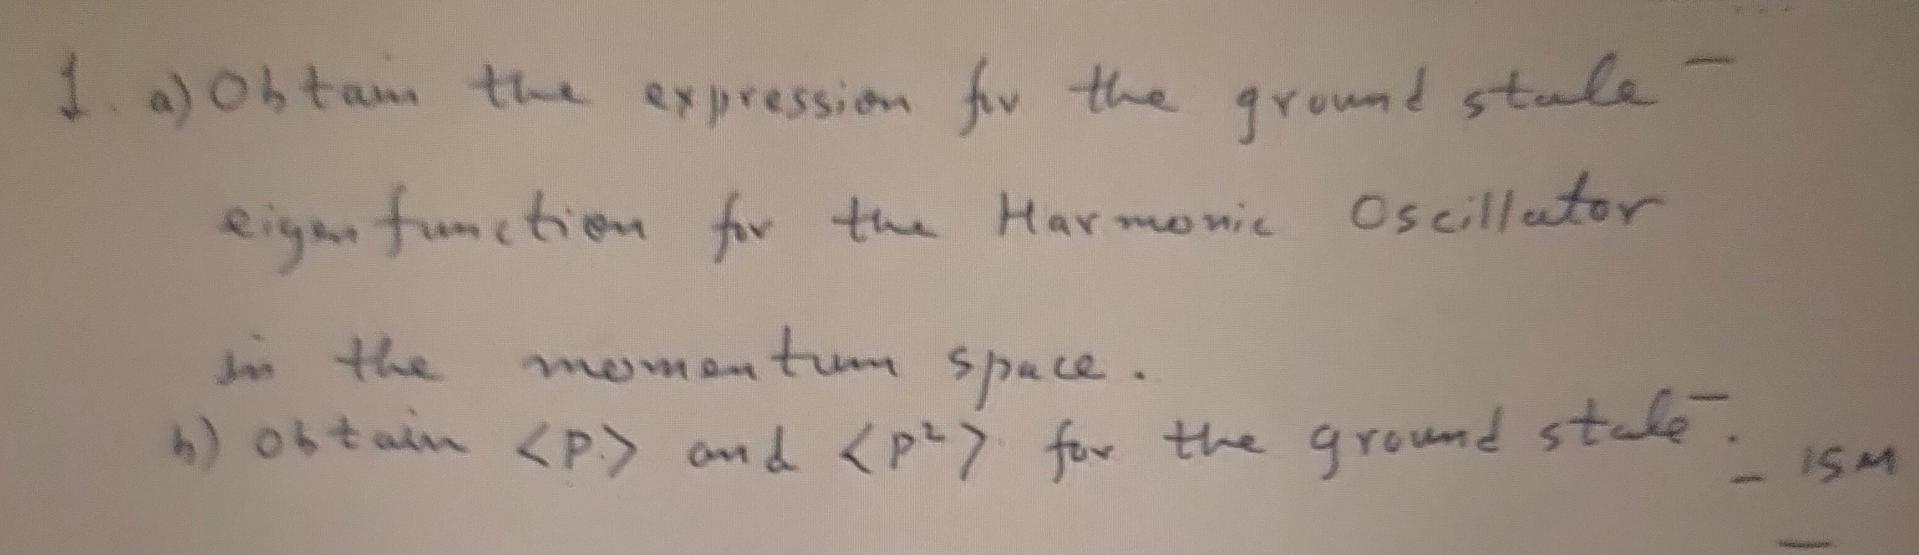 1. a) Obtain the expression for the ground state
eigen function for the Harmonic Oscillator
in the momentum space.
b) obtain <P> and <P²> for the ground state. 15M